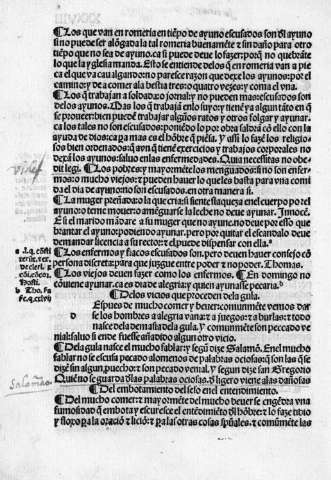 ¶Los que van en romeria en tiẽpo de ayuno escusados son ðl ayuno
si no puede ser alõgada la tal romeria buenamẽte z sin daño para otro
tiempo que no sea de ayuno. ca si puede deue lo fazer: porq̃ no quebrãte
lo que la yglesia manda. Esto se entiende delos q̃ en romeria van a pie
ca el que va caualgando: no paresce razon que dexe los ayunos: por el
camino: z de a comer ala bestia tres: o quatro vezes: z coma el vna.
¶Los q̃ trabajan a soldada: o jornal: z no pueden mas: escusados son
delos ayunos. Mas los q̃ trabajã enlo suyo z tiene ya algun tãto en q̃
se proueer: bien puedẽ trabajar algũos ratos y otros folgar y ayunar.
ca los tales no son escusados: poniẽdo lo por obra
ayuda de dios: ca para mas es el hõbre q̃ piẽsa. Y assi lo faze los religio
sos bien ordenados: q̃ avn q̃ tienẽ exercicios y trabajos corporales no
dexã los ayunos: saluo enlas enfermedades. Quia necessitas no habe
dit legi. ¶Los pobres: y mayormẽte los menguados: si no son enfer
mos: o mucho viejos: z pueden hauer lo queles basta para vna comi
da el dia de ayuno: no son escusados en otra manera si.
¶La muger preñada: o la que cria: si siente flaqueza en el cuerpo por el
ayuno: o teme mouer: o amẽguarse la leche no deue ayunar. Jnnocẽ.
E si el marido mãdare a su muger que no ayune. no deue por esso que
brantar el ayuno: pudiendo ayunar. pero por quitar el escandalo deue
demandar licencia a su rector: z el puede dispensar con ella. a
¶Los enfermos y flacos escusados son. pero deuen hauer consejo cõ
persona discreta: para que juzgue entre poder z no poder. Thomas.
¶Los viejos deuen fazer como los enfermos. ¶En domingo no
cõuiene ayunar. ca es dia de alegria: y quien ayunasse pecaria. b
¶Delos vicios que proceden dela gula.
Espues de mucho comer z beuer: comunmẽte vemos dar
se los hombres a alegria vana: z a juegos: z a burlas: z todo
nasce dela demasia dela gula. Y comunmẽte son peccado ve
nial: saluo si ende fuesse añadido algun otro vicio.
¶Dela gula nasce el mucho fablar: y segũ dize Salamõ. En el mucho
fablar no se escusa pecado alomenos de palabras ociosas: q̃ son las que se
dize sin algun puecho: z son pecado venial. Y segun dize san Gregorio
Quiẽ no se guarda dlas palabras ociosas. d ligero viene alas dañosas
¶Del embotamiento del seso en el entendimiento.
¶Del mucho comer: z muy ormẽte del mucho beuer se engẽdra vna
fumosidad q̃ embota y escuresce el entẽdimiẽto dl hõbre: z lo faze tibio
y floxo pa la oraciõ z liciõ: z pa las otras cosas spũales. z comũmẽte las
d
Salamão